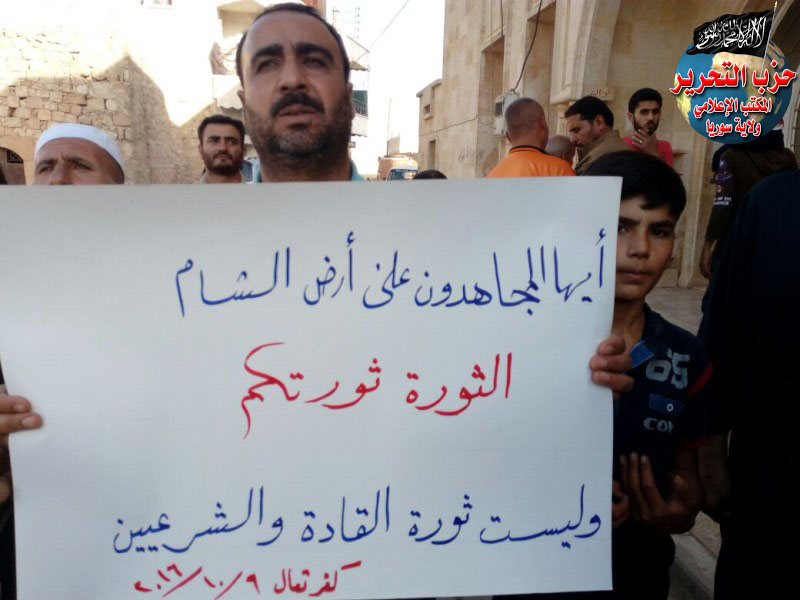 أيها المجاهدون على أرض الشام
الثورة ثورتكم
وليست ثورة القادة والشرعيين
كفرتعال ٢٠١٦/١٠/٩
لا إله إلا الله محمد رسول الله
حزب التحرير
المكتب الإعلامي
ولاية سوريا
65
CON